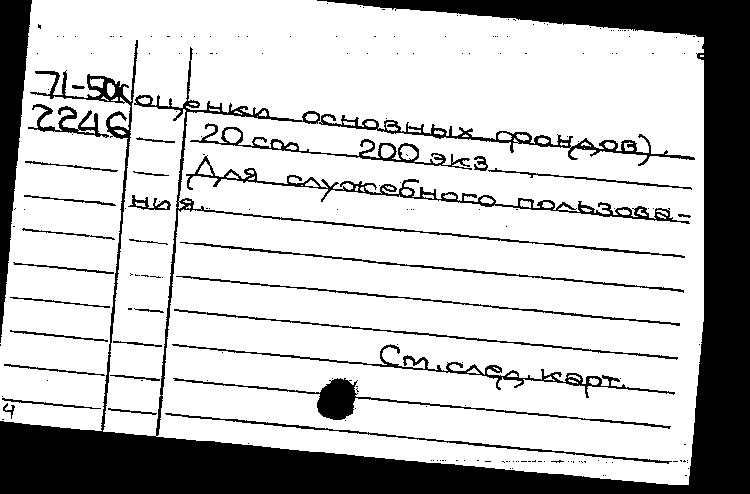 71-50к оценки основных фондов).
2246 20 стл. 200 экз.
Для служебного пользова-
ния.
См. след. карт.
4